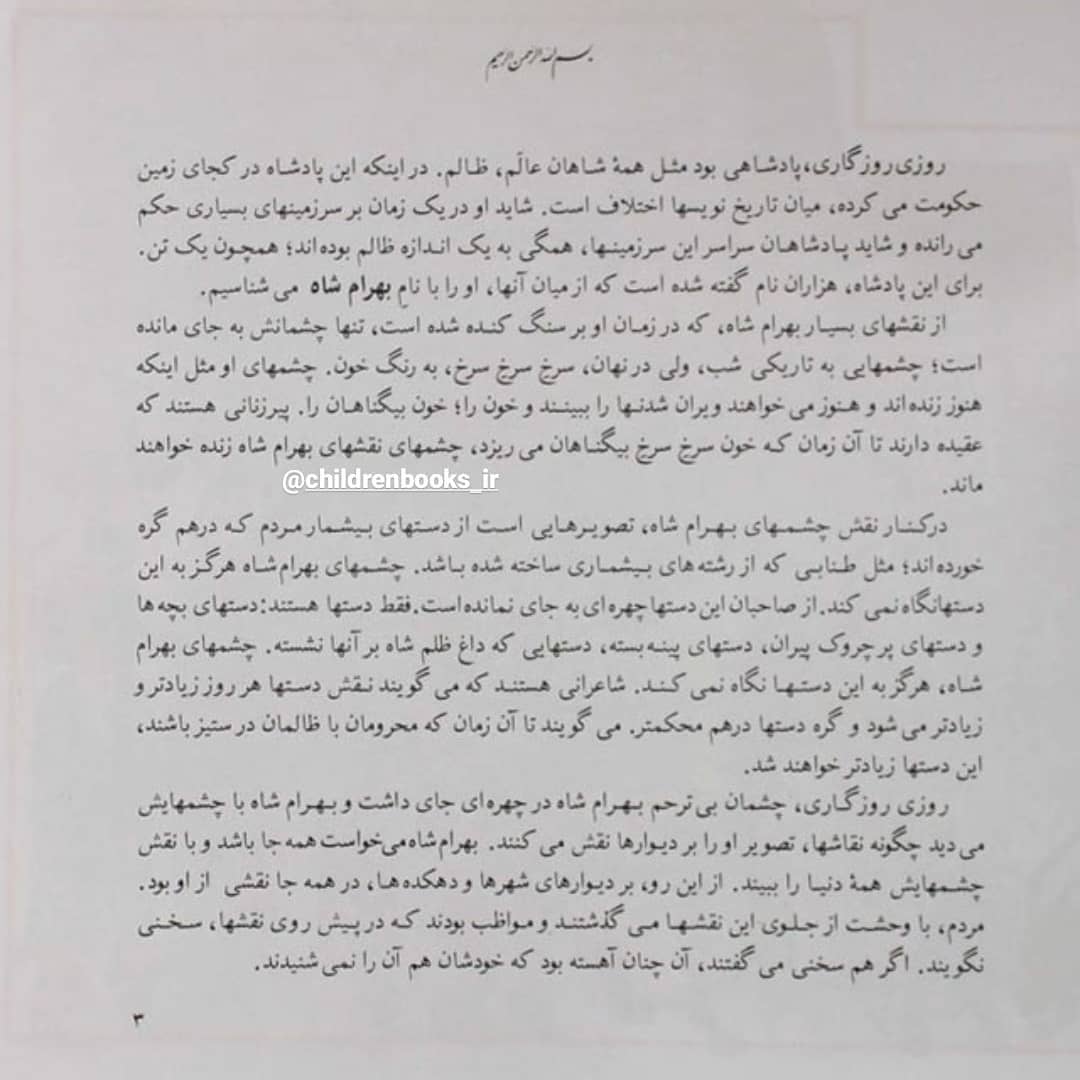 بسم الله الرحمن الرحیم
روزی روزگاری، پادشاهی بود مثل همهٔ شاهان عالَم، ظالم. در اینکه این پادشاه در کجای زمین
حکومت می کرده، میان تاریخ نویسها اختلاف است. شاید او در یک زمان بر سرزمینهای بسیاری حکم
می رانده و شاید پادشاهان سراسر این سرزمینها، همگی به یک اندازه ظالم بوده اند؛ همچون یک تن.
برای این پادشاه، هزاران نام گفته شده است که از میان آنها، او را با نامِ بهرام شاه می شناسیم.
از نقشهای بسیار بهرام شاه، که در زمان او بر سنگ کنده شده است، تنها چشمانش به جای مانده
است؛ چشمهایی به تاریکی شب، ولی در نهان، سرخ سرخ سرخ، به رنگ خون. چشمهای او مثل اینکه
هنوز زنده اند و هنوز می خواهند ویران شدنها را ببینند و خون را؛ خون بیگناهان را. پیرزنانی هستند که
عقیده دارند تا آن زمان که خون سرخ سرخ بیگناهان می ریزد، چشمهای نقشهای بهرام شاه زنده خواهند
ماند.
@childrenbooks_ir
در کنار نقش چشمهای بهرام شاه، تصویرهایی است از دستهای بیشمار مردم که درهم گره
خورده اند؛ مثل طنابی که از رشته های بیشماری ساخته شده باشد. چشمهای بهرام شاه هرگز به این
دستها نگاه نمی کند. از صاحبان این دستها چهره ای به جای نمانده است. فقط دستها هستند: دستهای بچه ها
و دستهای پر چروک پیران، دستهای پینه بسته، دستهایی که داغ ظلم شاه بر آنها نشسته. چشمهای بهرام
شاه، هرگز به این دستها نگاه نمی کند. شاعرانی هستند که می گویند نقش دستها هر روز زیادتر و
زیادتر می شود و گره دستها درهم محکمتر. می گویند تا آن زمان که محرومان با ظالمان در ستیز باشند،
این دستها زیادتر خواهند شد.
روزی روزگاری، چشمان بی ترحم بهرام شاه در چهره ای جای داشت و بهرام شاه با چشمهایش
می دید چگونه نقاشها، تصویر او را بر دیوارها نقش می کنند. بهرام شاه می خواست همه جا باشد و با نقش
چشمهایش همهٔ دنیا را ببیند. از این رو، بر دیوارهای شهرها و دهکده ها، در همه جا نقشی از او بود.
مردم، با وحشت از جلوی این نقشها می گذشتند و مواظب بودند که در پیش روی نقشها، سخنی
نگویند. اگر هم سخنی می گفتند، آن چنان آهسته بود که خودشان هم آن را نمی شنیدند.
۳